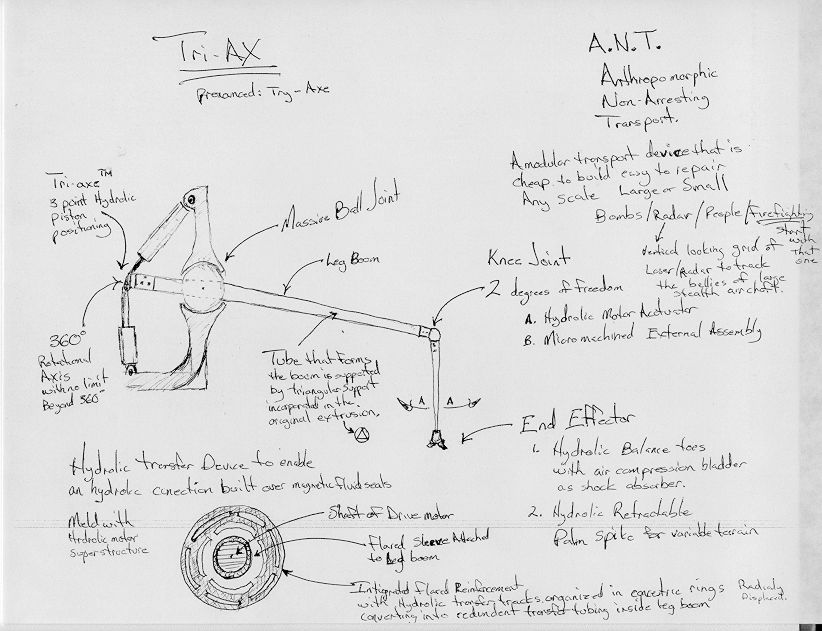 Tri-AX
pronanced: Try-Axe
A.N.T.
Anthropomorphic
Non-Arresting
Transport.
A modular transport device that is
cheap to build easy to repair
Any scale Large or Small
Bombs/Radar/People/Firefighting
start
with
that
one
Vertical looking grid of
Laser/radar to track
the bellies of large
stealth aircraft.
Tri-axe™
3 point Hydrolic
Piston
positioning
Massive Ball Joint
Leg Boom
Knee Joint
2 degrees of freedom
A. Hydrolic Motor Actuator
B. Micromachined External Assembly
360°
Rotational
Axis
with no limit
Beyond 360°
Tube that forms
the boom is supported
by triangular support
incorporated in the
original extrusion.
A A
End Effector
1. Hydrolic Balance toes
with air compression bladder
as shock absorber.
2. Hydrolic Retractable
Palm Spike for variable terrain
Hydrolic transfer Device to enable
an hydrolic conection built over magnetic fluid seals
Meld with
Hydrolic motor
Superstructure
Shaft of Drive motor
Flared Sleeve Attached
to Leg boom
Intigrated Flared Reinforcement
with Hydrolic transfer tracks organized in concetric rings Radialy
Displaced.
converting into redundent transfer tubing inside leg boom